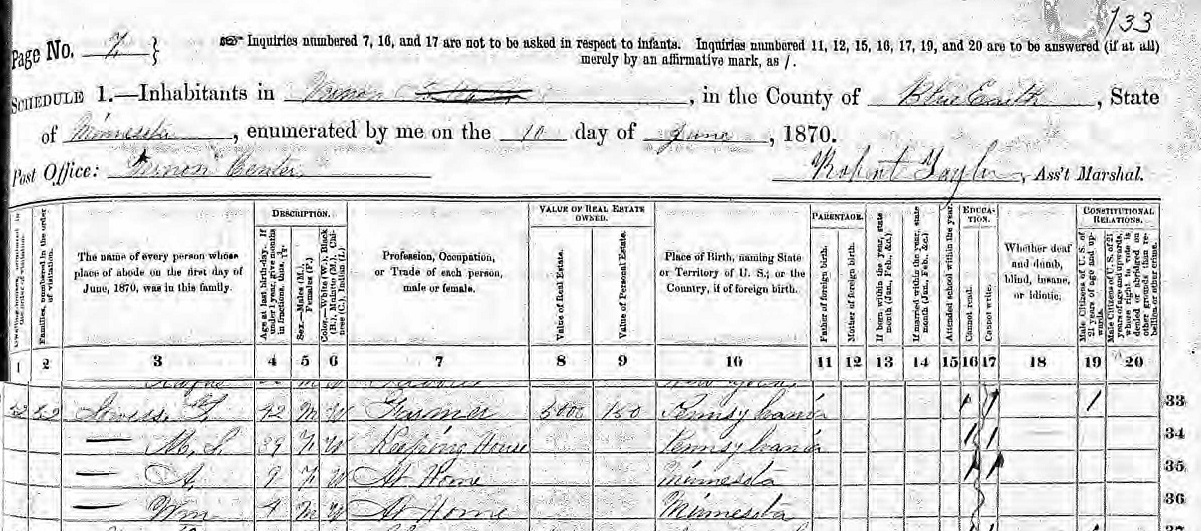 133
Page No. 7 }
☞ Inquiries numbered 7, 16, and 17 are not to be asked in respect to infants. Inquiries numbered 11, 12, 15, 16, 17, 19, and 20 are to be answered (if at all)
merely by an affirmative mark, as /.
SCHEDULE 1.—Inhabitants in Vernon, in the County of Blue Earth, State
of Minnesota, enumerated by me on the 10 day of June, 1870.
Post Office: Vernon Center
Robert Taylor, Ass't Marshal.
Dwelling-houses, numbered in the order of visitation.
Families, numbered in the order of visitation.
The name of every person whose place of abode on the first day of June, 1870, was in this family.
DESCRIPTION.
Age at last birth-day. If under 1 year, give months in fractions, thus, 3/12
Sex.—Males (M.), Females (F.)
Color.—White (W.), Black (B.), Mulatto (M.), Chinese (C.), Indian (I.)
Profession, Occupation, or Trade of each person, male or female.
VALUE OF REAL ESTATE OWNED.
Value of Real Estate.
Value of Personal Estate.
Place of Birth, naming State or Territory of U. S.; or the Country, if of foreign birth.
PARENTAGE.
Father of foreign birth.
Mother of foreign birth.
If born within the year, state month (Jan., Feb., &c.)
If married within the year, state month (Jan., Feb., &c.)
Attended school within the year.
EDUCATION.
Cannot read.
Cannot write.
Whether deaf and dumb, blind, insane, or idiotic.
CONSTITUTIONAL RELATIONS.
Male Citizens of U. S. of 21 years of age and upwards.
Male Citizens of U. S. of 21 years of age and upwards, whose right to vote is denied or abridged on other grounds than rebellion or other crime.
1 2 3 4 5 6 7 8 9 10 11 12 13 14 15 16 17 18 19 20
52 52 42 M W Farmer 5000 150 Pennsylvania / / / 33
— M. L. 39 F W Keeping House Pennsylvania / / 34
— A. 9 F W At Home Minnesota / / 35
— Wm 4 M W At Home Minnesota 36
37